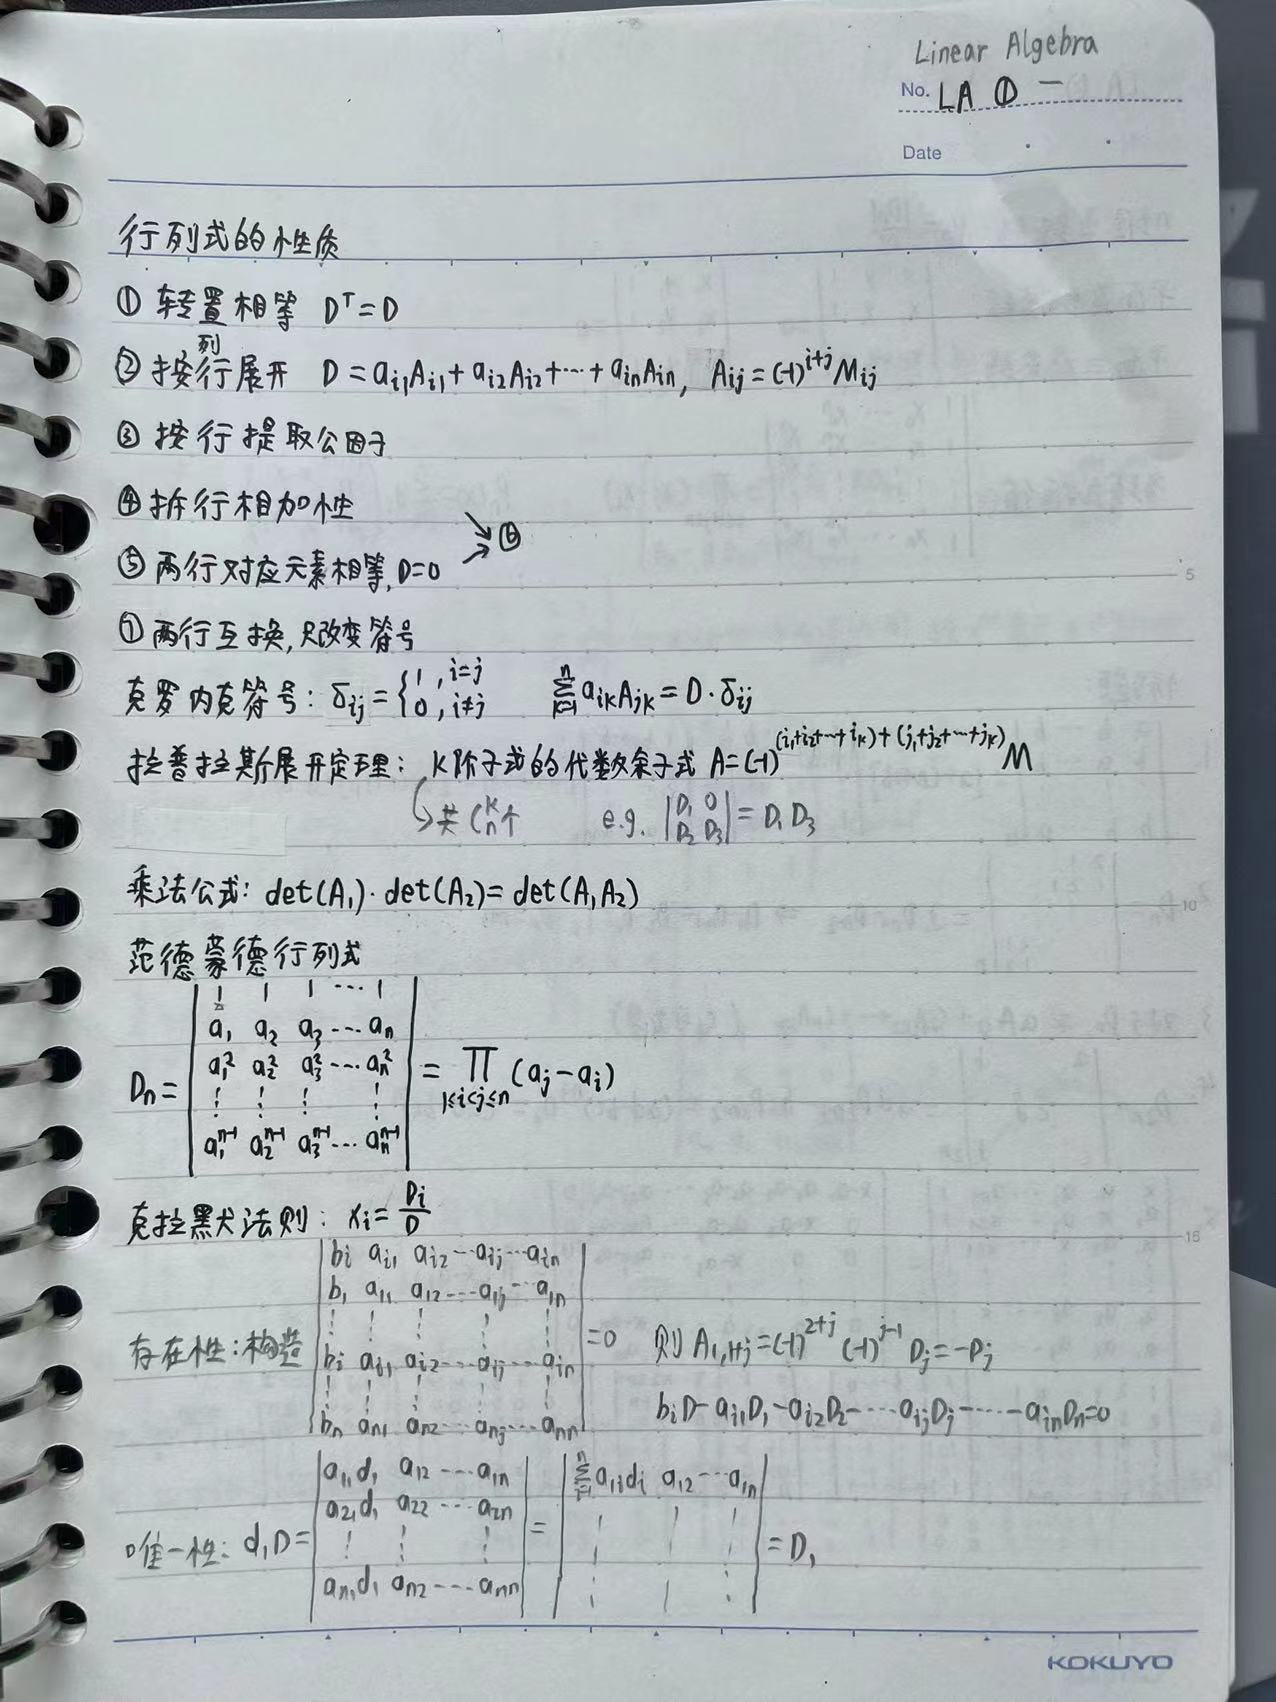 Linear Algebra
No. LA ① 一
Date
行列式的性质
① 转置相等 Dᵀ=D
② 按行(列)展开 D=aᵢ₁Aᵢ₁+aᵢ₂Aᵢ₂+⋯+aᵢₙAᵢₙ, Aᵢⱼ=(-1)^{i+j}Mᵢⱼ
③ 按行提取公因子
④ 拆行相加性
⑤ 两行对应元素相等,D=0 ↘→ ⑥
⑦ 两行互换,只改变符号
克罗内克符号: δᵢⱼ={1, i=j; 0, i≠j} \sum_{k=1}^{n} a_{ik}A_{jk}=D·δᵢⱼ
拉普拉斯展开定理: K阶子式的代数余子式 A=(-1)^{(i₁+i₂+⋯+i_k)+(j₁+j₂+⋯+j_k)}M
↳共C_n^k个 e.g. |D₁ 0; D₂ D₃|=D₁D₃
5
乘法公式: det(A₁)·det(A₂)=det(A₁A₂)
10
范德蒙德行列式
Dₙ=
| 1 1 1 ⋯ 1 |
| a₁ a₂ a₃ ⋯ aₙ |
| a₁² a₂² a₃² ⋯ aₙ² |
| ⋮ ⋮ ⋮ ⋮ |
| a₁^{n-1} a₂^{n-1} a₃^{n-1} ⋯ aₙ^{n-1} |
= ∏_{1≤i<j≤n} (aⱼ-aᵢ)
克拉默法则: xᵢ=Dᵢ/D
15
存在性:构造
| bᵢ aᵢ₁ aᵢ₂ ⋯ aᵢⱼ ⋯ aᵢₙ |
| b₁ a₁₁ a₁₂ ⋯ a₁ⱼ ⋯ a₁ₙ |
| ⋮ ⋮ ⋮ ⋮ ⋮ |
| bᵢ aᵢ₁ aᵢ₂ ⋯ aᵢⱼ ⋯ aᵢₙ |
| ⋮ ⋮ ⋮ ⋮ ⋮ |
| bₙ aₙ₁ aₙ₂ ⋯ aₙⱼ ⋯ aₙₙ |
=0 则 A_{1,1+j}=(-1)^{2+j}(-1)^{j-1}Dⱼ=-Dⱼ
bᵢD-aᵢ₁D₁-aᵢ₂D₂-⋯aᵢⱼDⱼ-⋯-aᵢₙDₙ=0
唯一性: d₁D=
| a₁₁d₁ a₁₂ ⋯ a₁ₙ |
| a₂₁d₁ a₂₂ ⋯ a₂ₙ |
| ⋮ ⋮ ⋮ |
| aₙ₁d₁ aₙ₂ ⋯ aₙₙ |
=
| \sum_{i=1}^{n} a₁ᵢdᵢ a₁₂ ⋯ a₁ₙ |
| ⋮ ⋮ ⋮ |
=D₁
KOKUYO